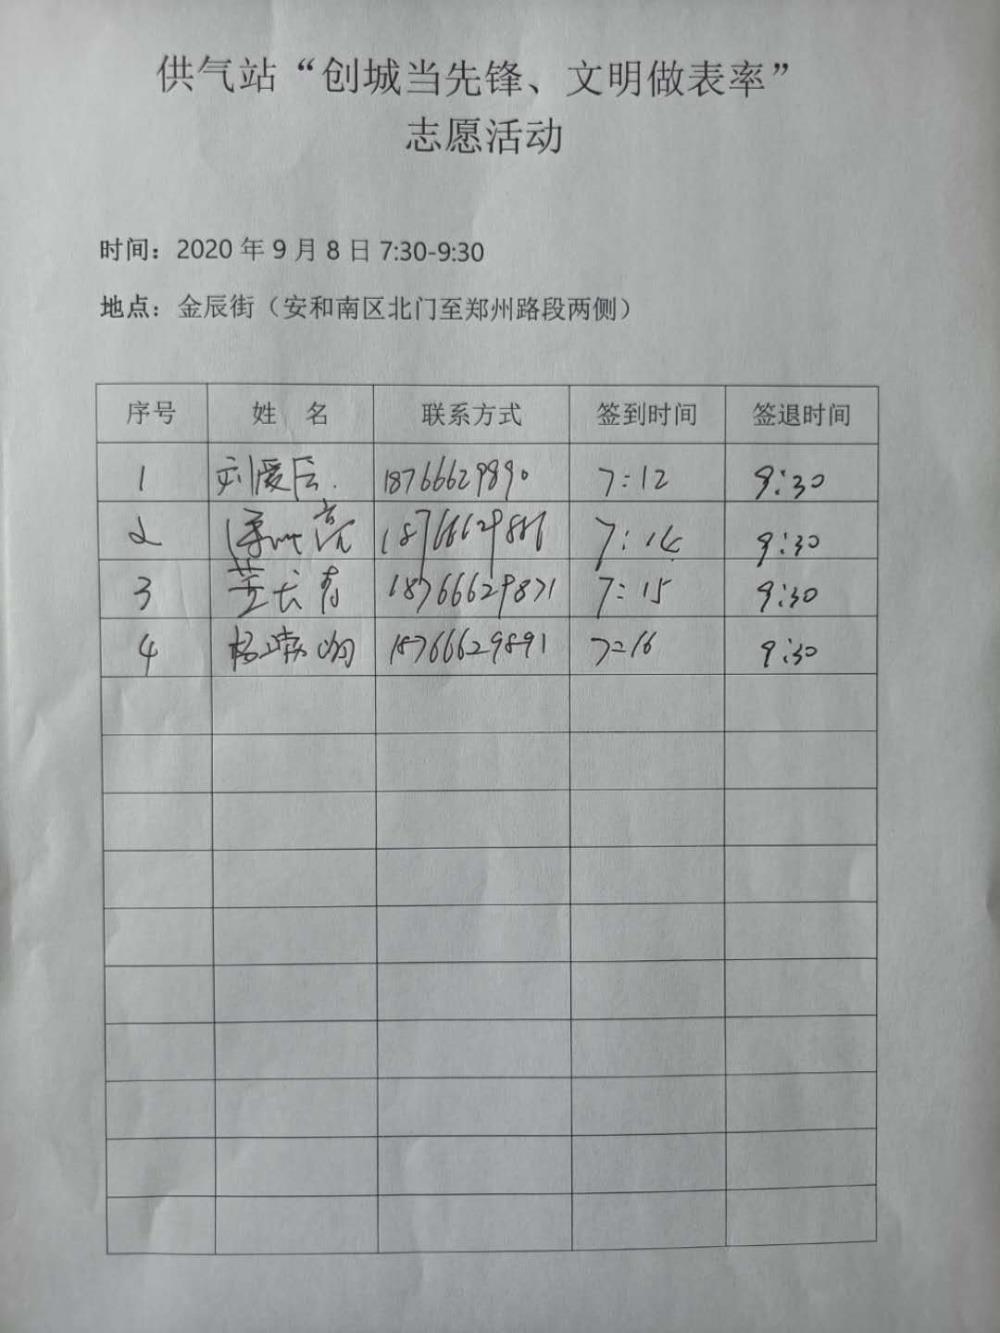 供气站“创城当先锋、文明做表率”
志愿活动
时间：2020 年 9 月 8 日 7:30-9:30
地点：金辰街（安和南区北门至郑州路段两侧）
序号 姓 名 联系方式 签到时间 签退时间
1 刘爱后 18766629890 7:12 9:30
2 亮 18766629886 7:14 9:30
3 董长青 18766629871 7:15 9:30
4 杨 18766629891 7:16 9:30